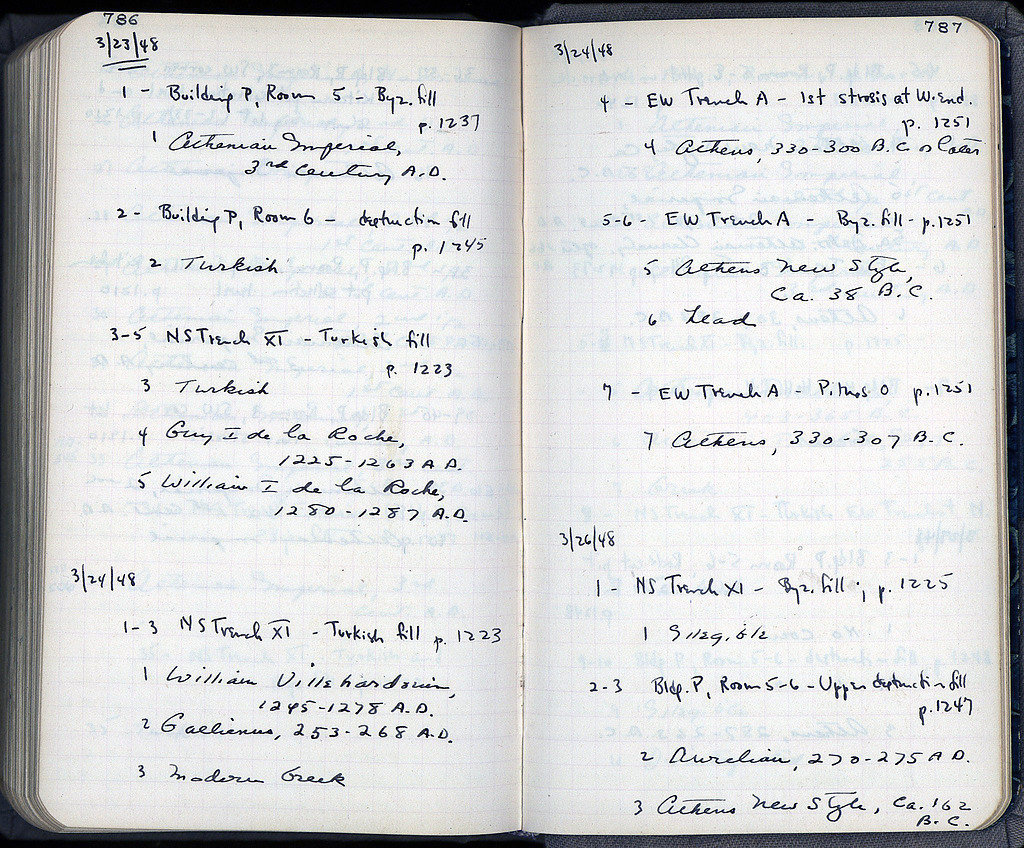 786
3/23/48
1 - Building P, Room 5 - Byz. fill
p. 1237
1 Athenian Imperial,
3rd century A.D.
2 - Building P, Room 6 - destruction fill
p. 1245
2 Turkish
3-5 NS Trench XI - Turkish fill
p. 1223
3 Turkish
4 Guy I de la Roche,
1225-1263 A.D.
5 William I de la Roche,
1280-1287 A.D.
3/24/48
1-3 NS Trench XI - Turkish fill p. 1223
1 William Villehardouin,
1245-1278 A.D.
2 Gallienus, 253-268 A.D.
3 Modern Greek
787
3/24/48
4 - EW Trench A - 1st strosis at W. end.
p. 1251
4 Athens, 330-300 B.C. or later
5-6 - EW Trench A - Byz. fill - p. 1251
5 Athens New Style,
Ca. 38 B.C.
6 Lead
7 - EW Trench A - Pithos O p. 1251
7 Athens, 330-307 B.C.
3/26/48
1 - NS Trench XI - Byz. fill; p. 1225
1 Illegible
2-3 Bldg. P, Room 5-6 - Upper destruction fill
p. 1247
2 Aurelian, 270-275 A.D.
3 Athens New Style, Ca. 162
B.C.